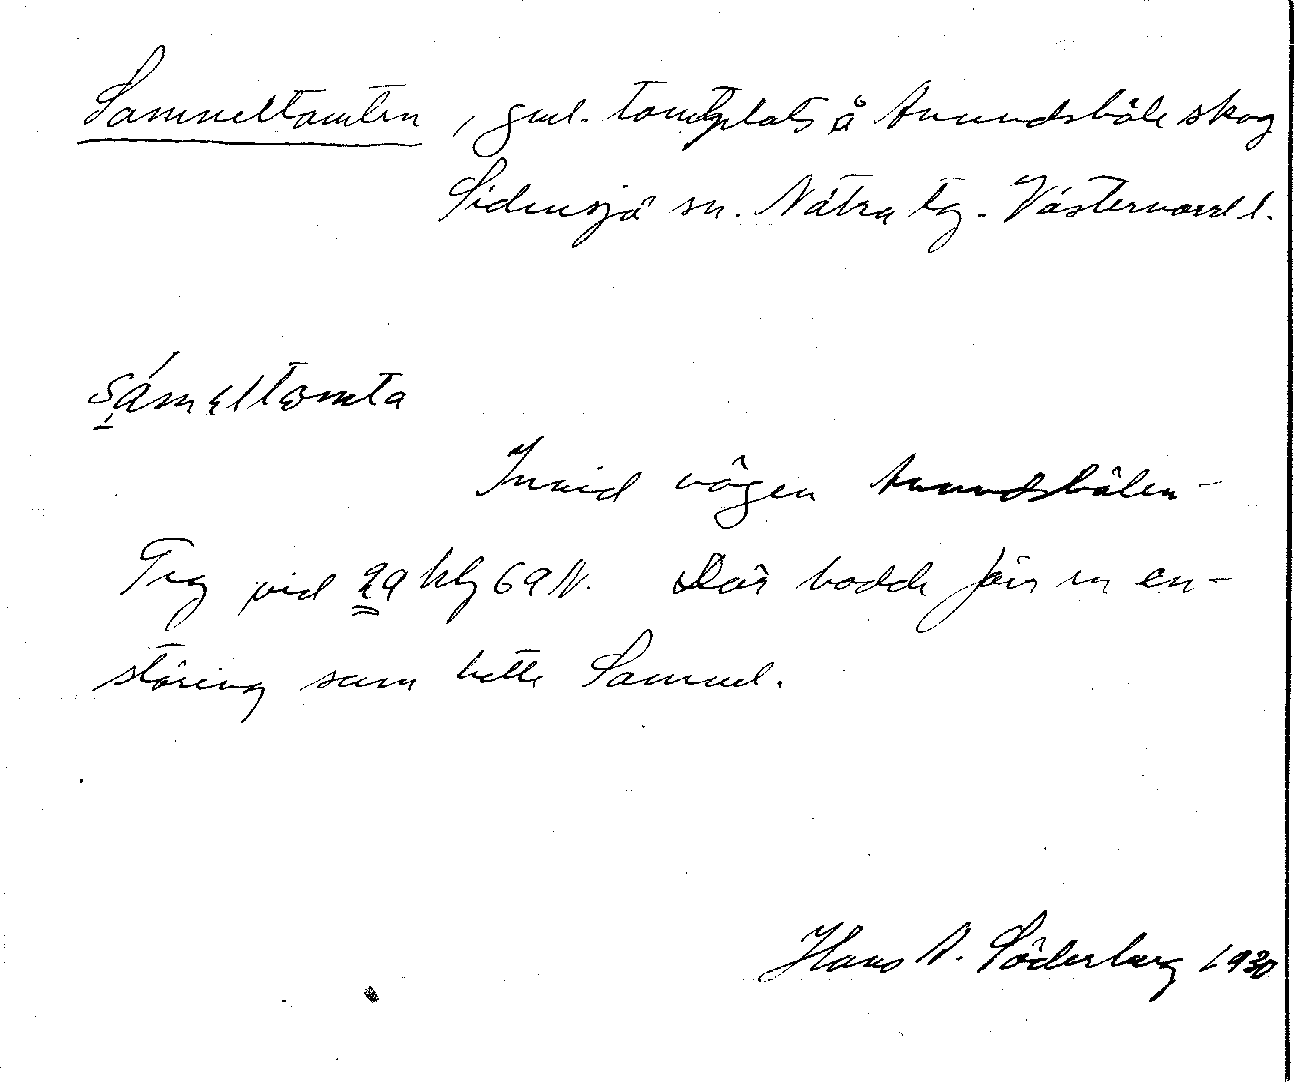 Samueltomten, gml. tomtplats å Anundsböle skog
Sidensjö sn. Nätra tg. Västernorrl l.
sámeltomta
Invid vägen Anundsbölen-
Teg vid 29 hlg 69 N. Där bodde förr en en-
störing som hette Samuel.
Hans A. Söderberg 1930